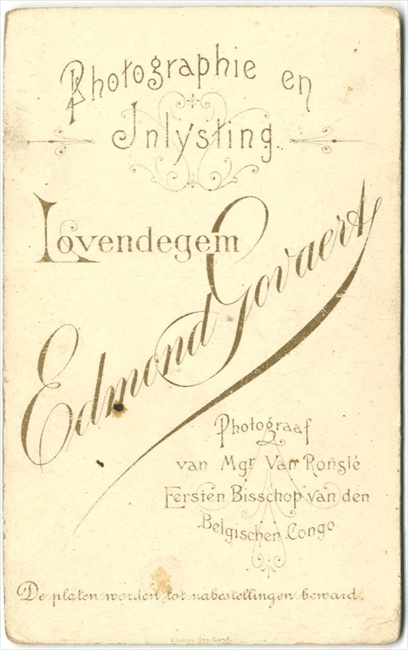 Photographie en
Inlysting.
Lovendegem
Edmond Govaert
Photograaf
van Mgr Van Ronslé
Eersten Bisschop van den
Belgischen Congo
De platen worden tot nabestellingen beward.